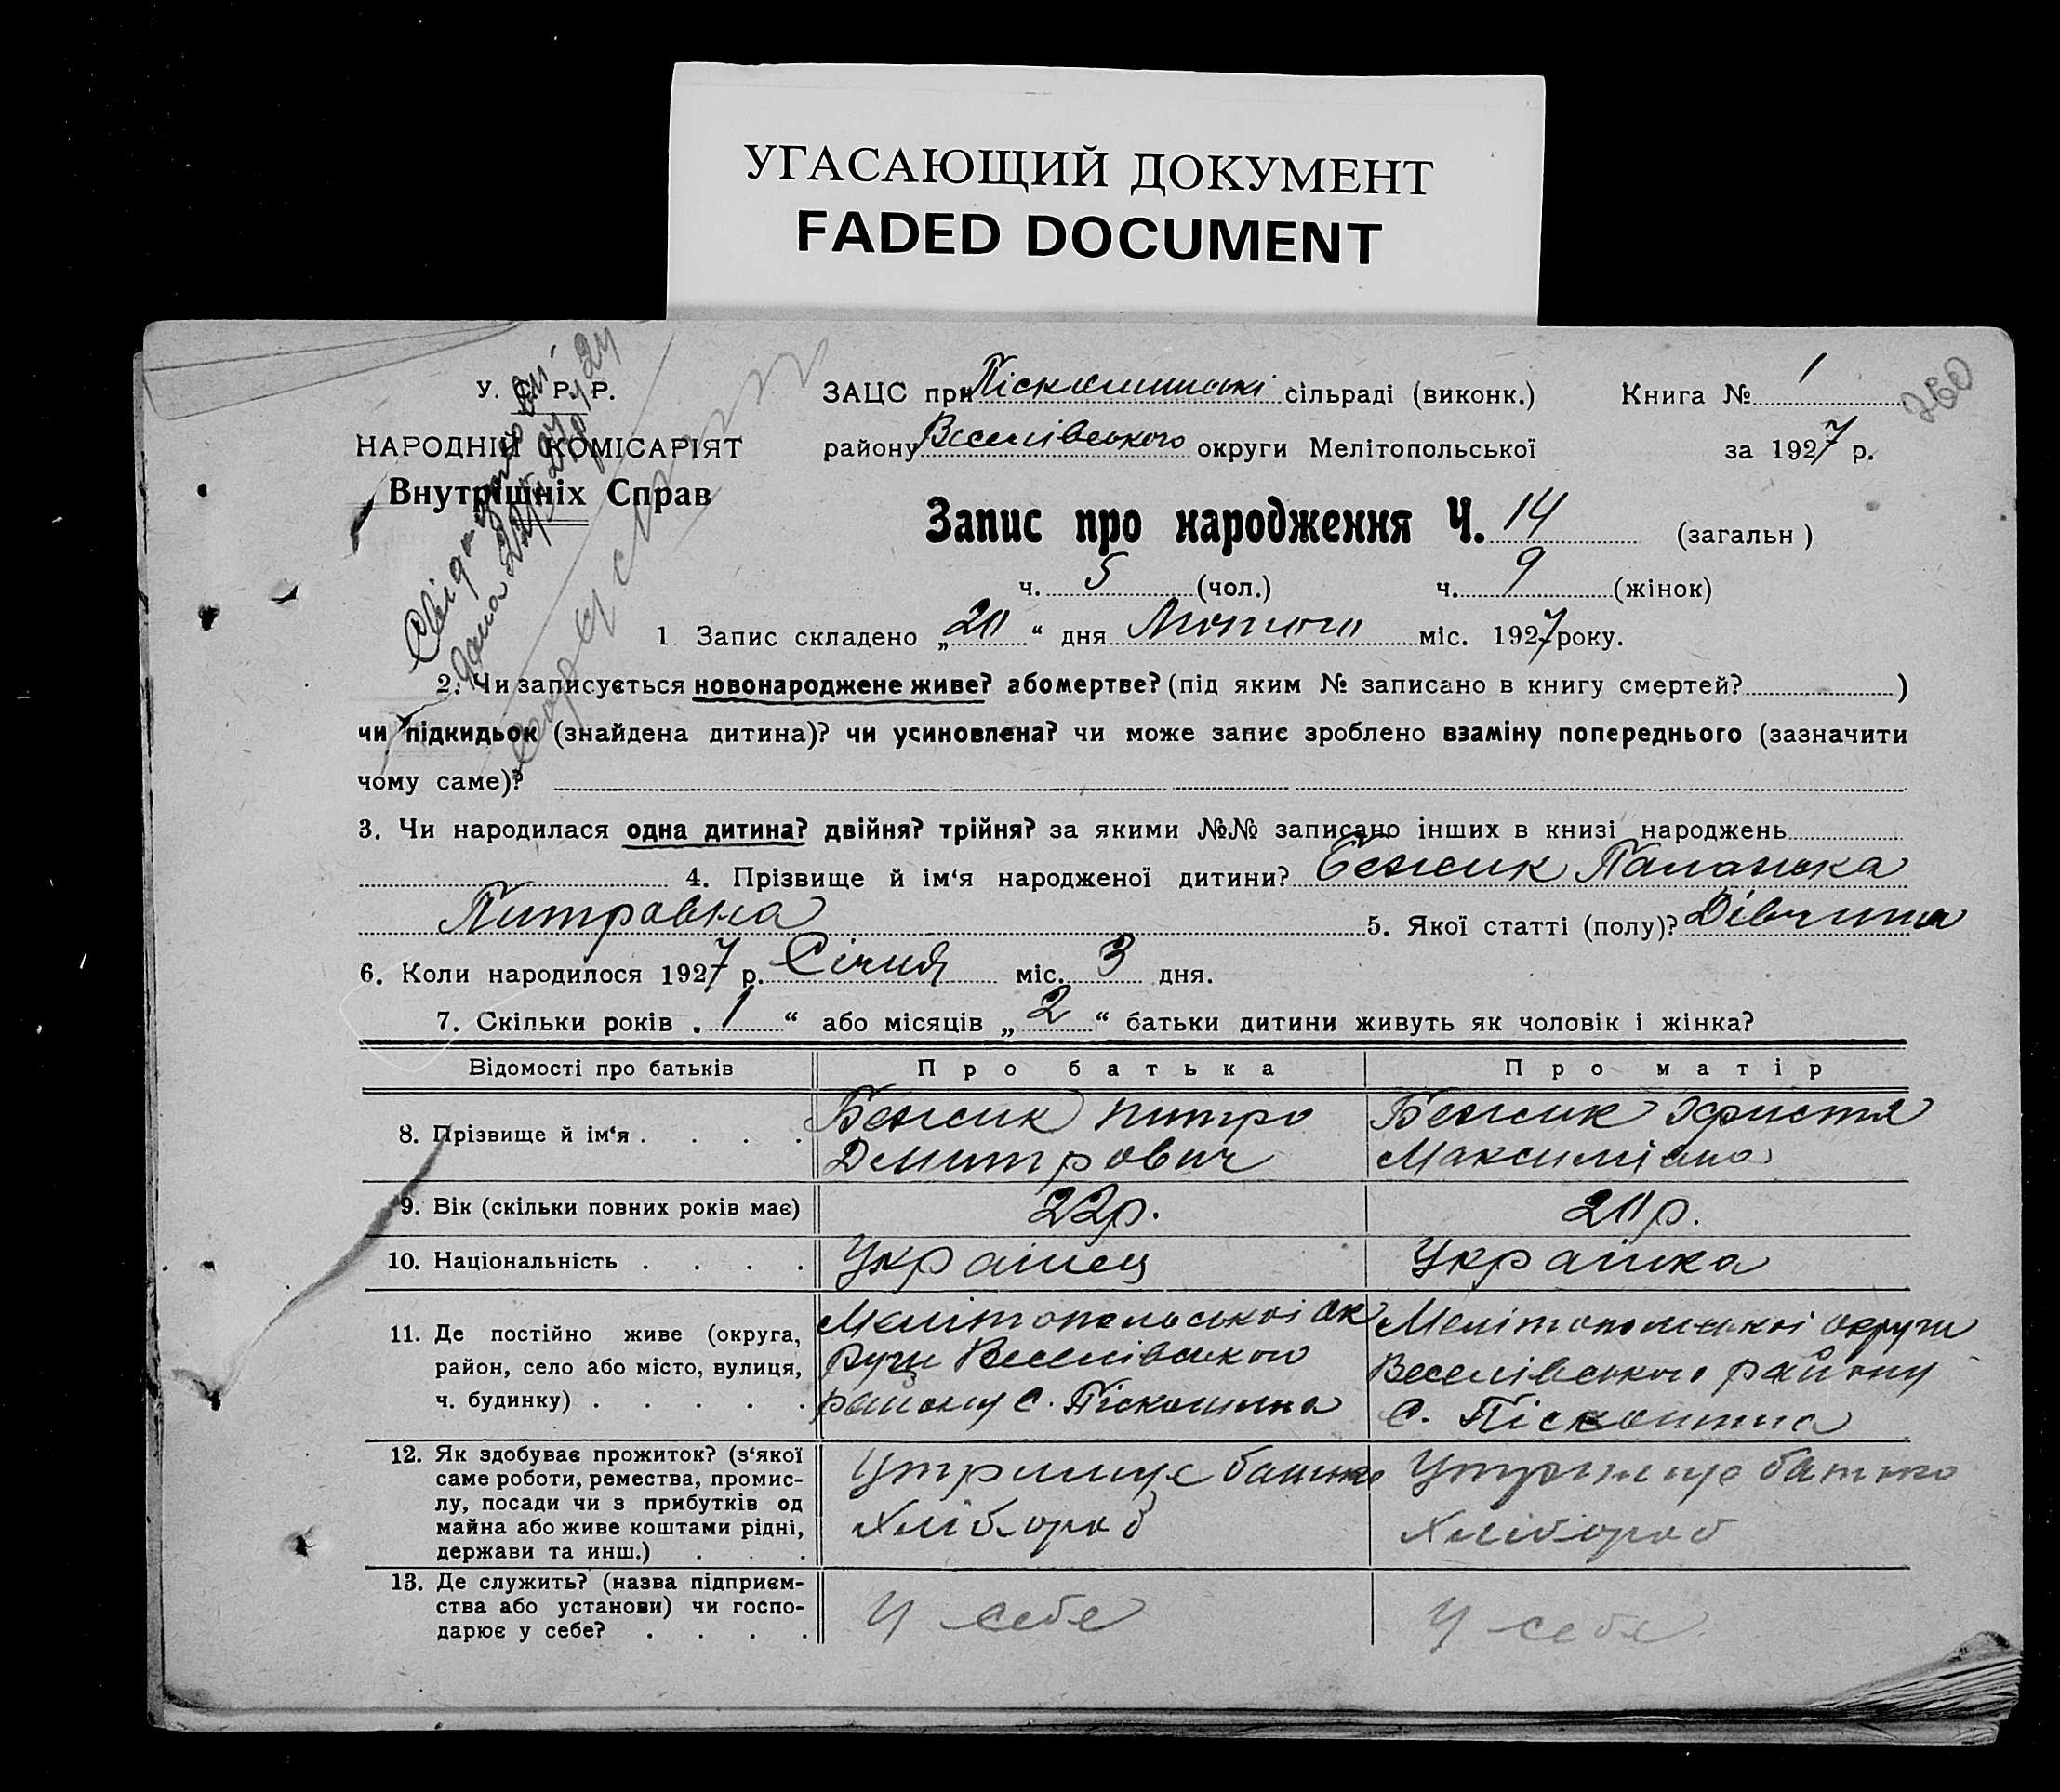 УГАСАЮЩИЙ ДОКУМЕНТ
FADED DOCUMENT
У. С. Р. Р.
НАРОДНІЙ КОМІСАРІЯТ
Внутрішніх Справ
ЗАЦС при Піскошинські сільраді (виконк.)
району Веселівського округи Мелітопольської
Книга № 1
260
за 1927 р.
Запис про народження Ч. 14 (загальн)
ч. 5 (чол.) ч. 9 (жінок)
1 Запис складено „20“ дня Лютого міс. 1927 року.
2. Чи записується новонароджене живе? або мертве? (під яким № записано в книгу смертей? )
чи підкидьок (знайдена дитина)? чи усиновлена? чи може запис зроблено взаміну попереднього (зазначити
чому саме)?
3. Чи народилася одна дитина? двійня? трійня? за якими №№ записано інших в книзі народжень
4. Прізвище й ім‘я народженої дитини? Бенсик Паланька
Питровна 5. Якої статті (полу)? Дівчина
6. Коли народилося 1927 р. Січня міс. 3 дня.
7. Скільки років „1“ або місяців „2“ батьки дитини живуть як чоловік і жінка?
Відомості про батьків Про батька Про матір
8. Прізвище й ім‘я . . . .
Бенсик Питро
Дмитрович
Бенсик Христя
Максимівна
9. Вік (скільки повних років має) 22р. 20р.
10. Національність . . . . Українец Українка
11. Де постійно живе (округа,
район, село або місто, вулиця,
ч. будинку) . . . . .
Мелітопольськоі ок
руги Веселівського
району с. Піскошина
Мелітопольскоі округи
Веселівського району
с. Піскошина
12. Як здобуває прожиток? (з‘якої
саме роботи, ремества, промис-
лу, посади чи з прибутків од
майна або живе коштами рідні,
держави та инш.) . . .
Утримує батько
Хлібороб
Утримує батько
Хлібороб
13. Де служить? (назва підприєм-
ства або установи) чи госпо-
дарює у себе? . . . .
У себе
У себе